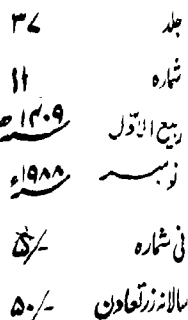 جلد ۳۷
شمارہ ۱۱
ربیع الاوّل ۱۴۰۹ھ
نومبر ۱۹۸۸ء
فی شمارہ ۵/-
سالانہ زرتعاون ۵۰/-